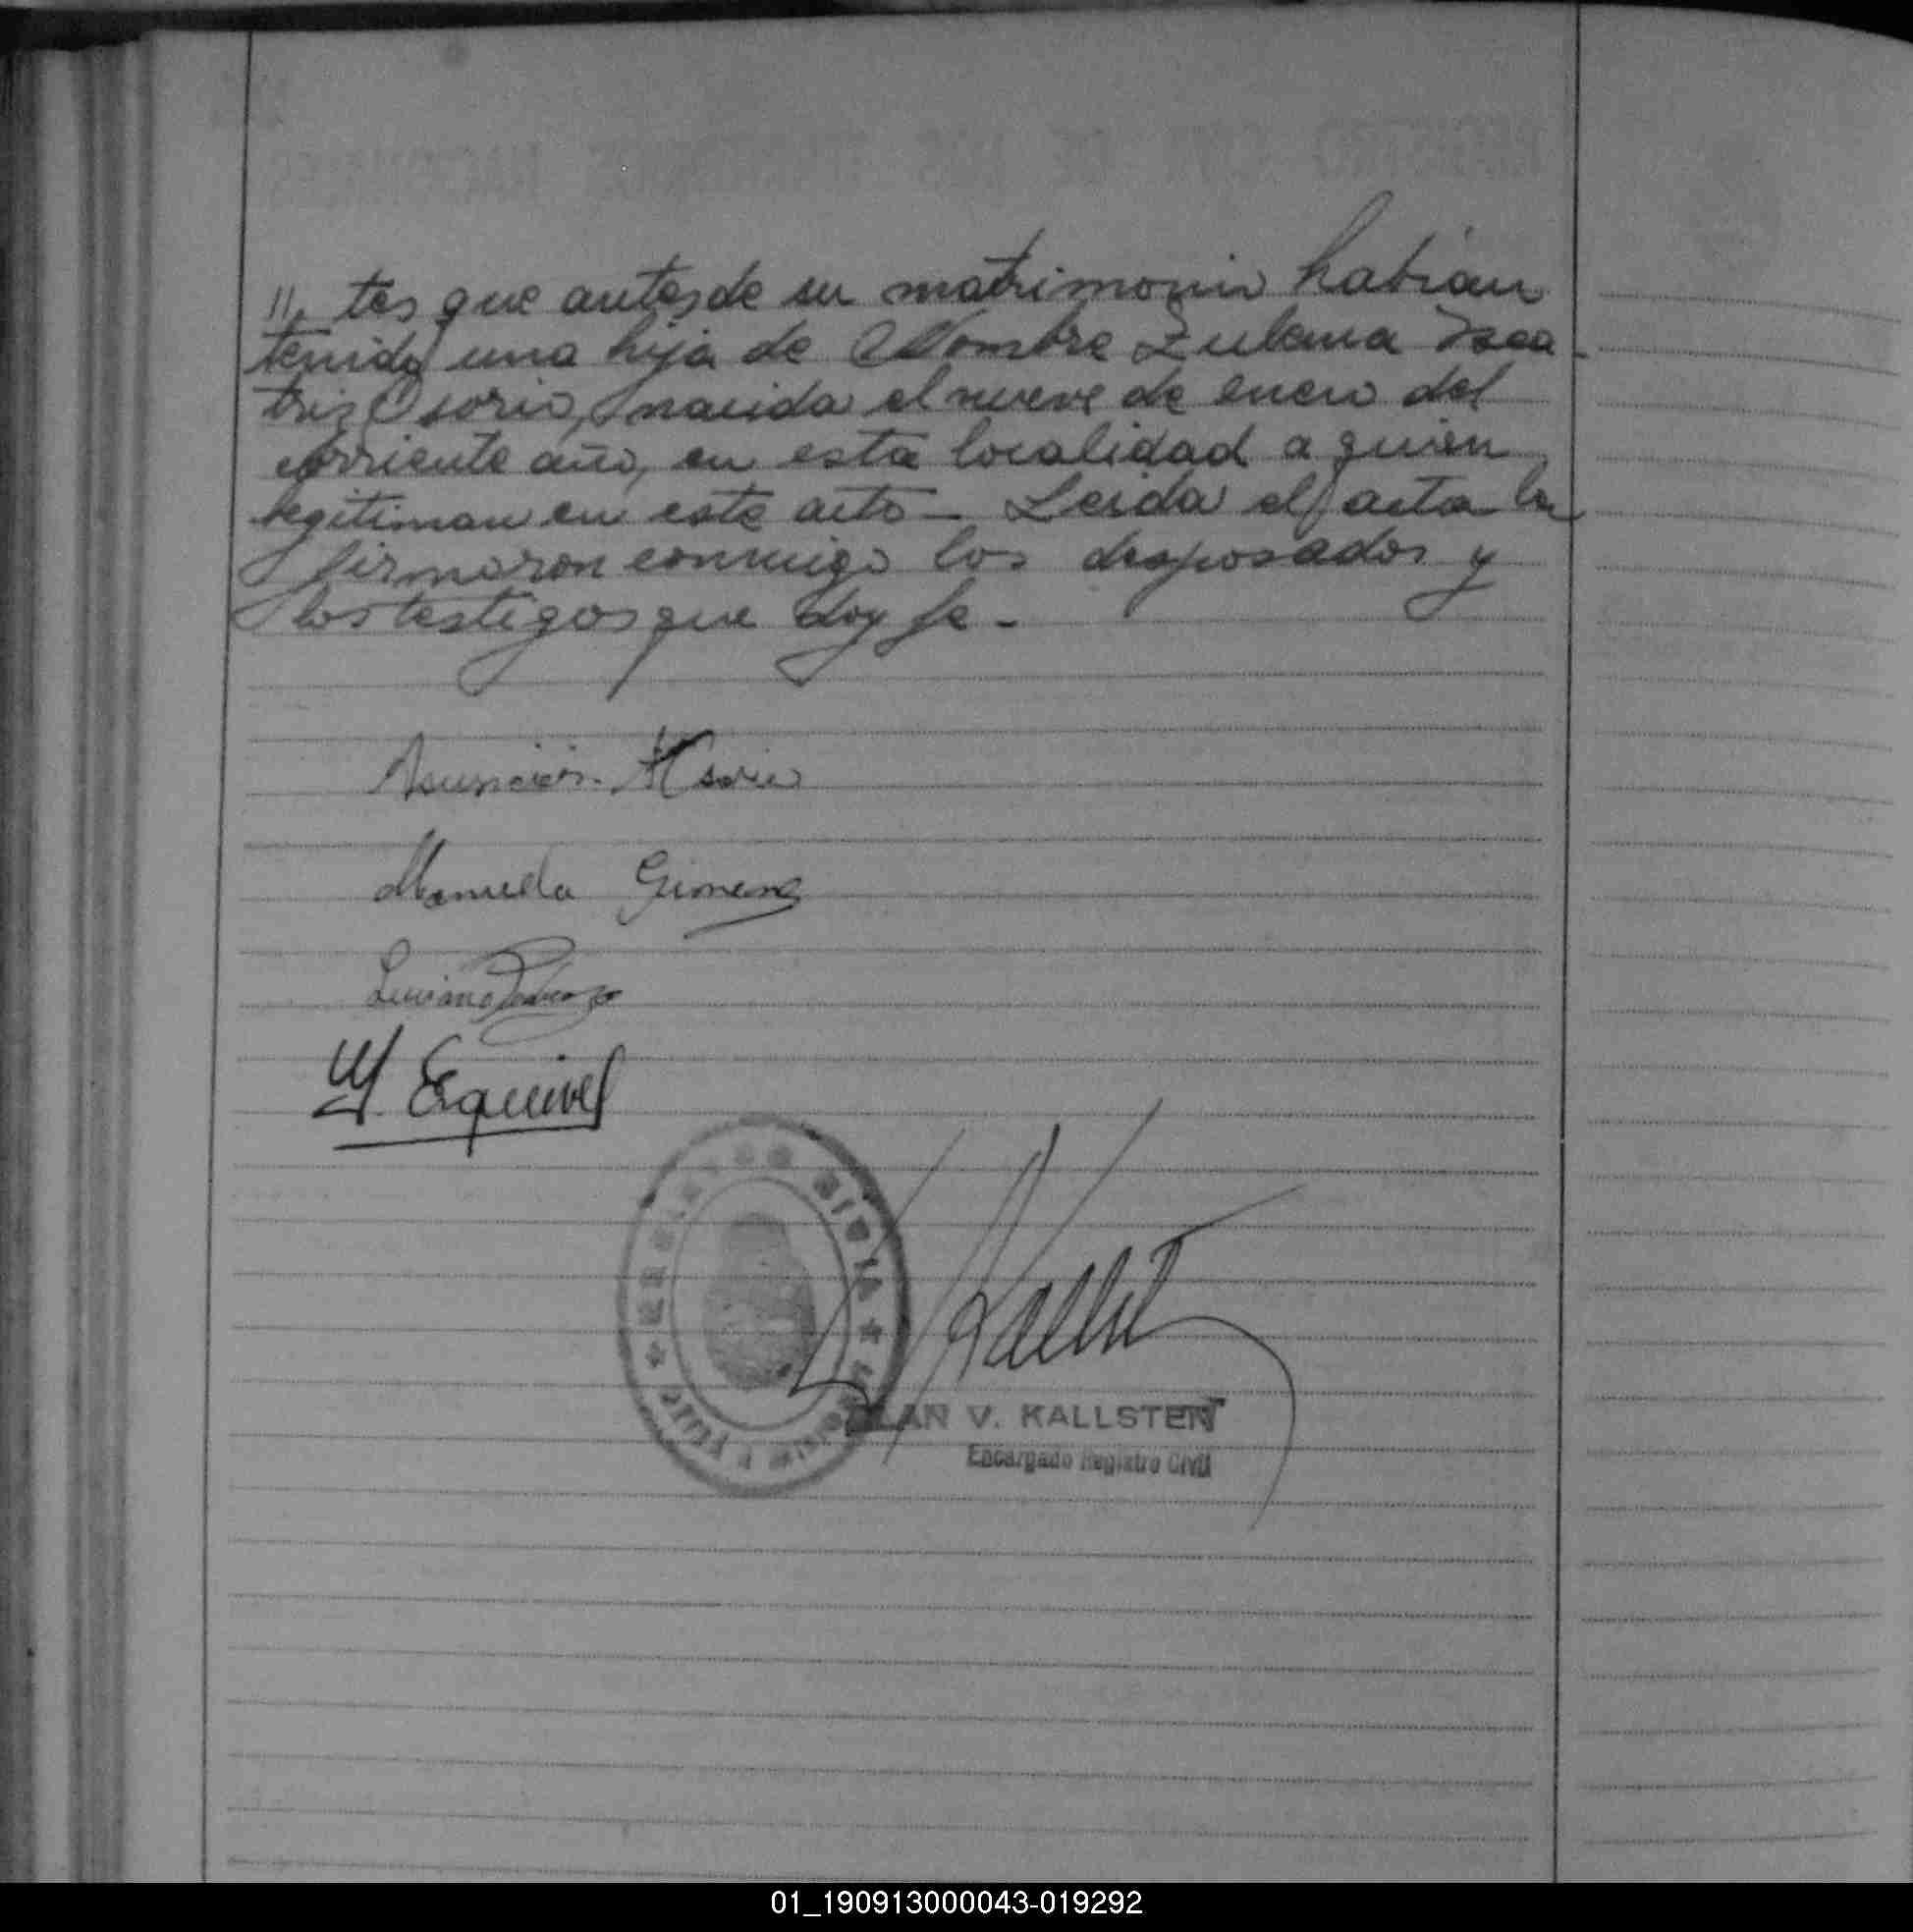 tes que antes de su matrimonio habian
tenido una hija de Nombre Zulema Bea-
triz Osorio, nacida el nueve de enero del
corriente año, en esta localidad a quien
legitiman en este acto - Leida el acta la
firmaron conmigo los desposados y
los testigos que doy fe -
Asuncion Osorio
Manuela Gimenez
Luciano
M. Esquivel
V. KALLSTEN
Encargado Registro Civil
01_190913000043-019292